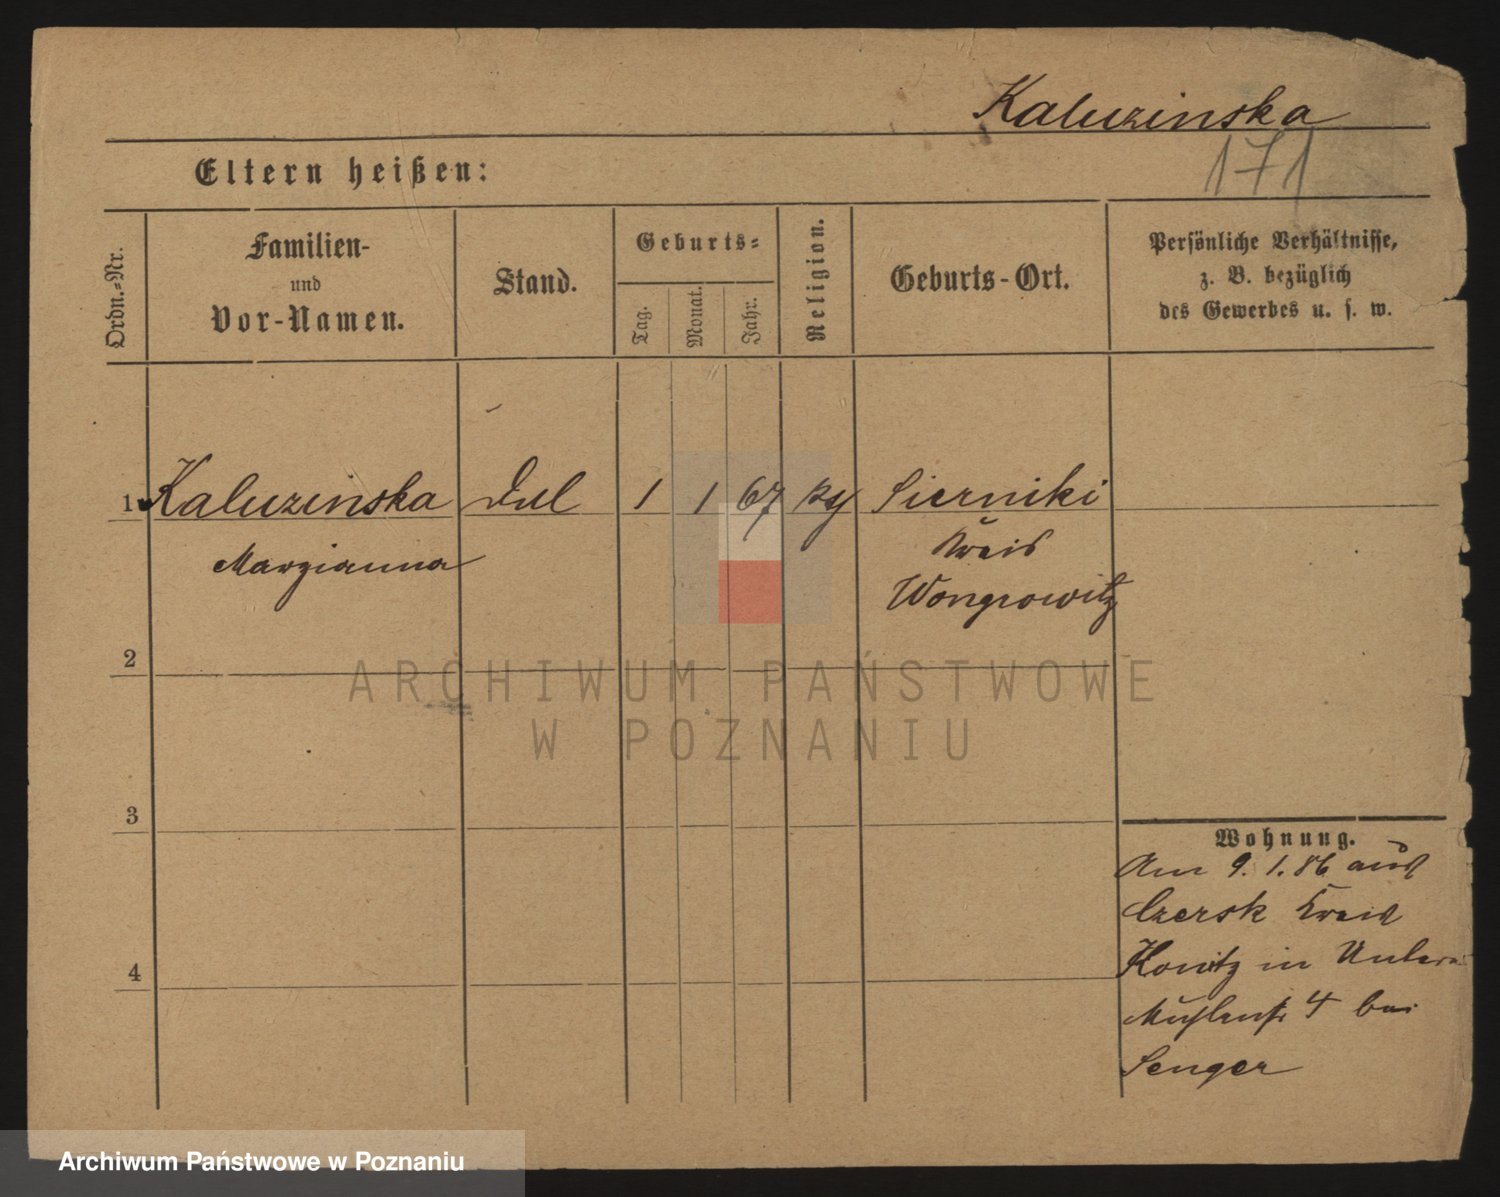 Kaluzinska
171
Eltern heißen:
Ordn.-Nr.
Familien-
und
Vor-Namen.
Stand.
Geburts-
Tag.
Monat.
Jahr.
Religion.
Geburts-Ort.
Persönliche Verhältnisse,
z. B. bezüglich
des Gewerbes u. s. w.
1 Kaluzinska 1 1 67 Sierniki
Maryianna Kreis
Wongrowitz
2
ARCHIWUM PAŃSTWOWE
W POZNANIU
3
Wohnung.
Am 9.1.86 aus
Czersk Kreis
Konitz in
Mühlenstr 4 bei
Senger
4
Archiwum Państwowe w Poznaniu